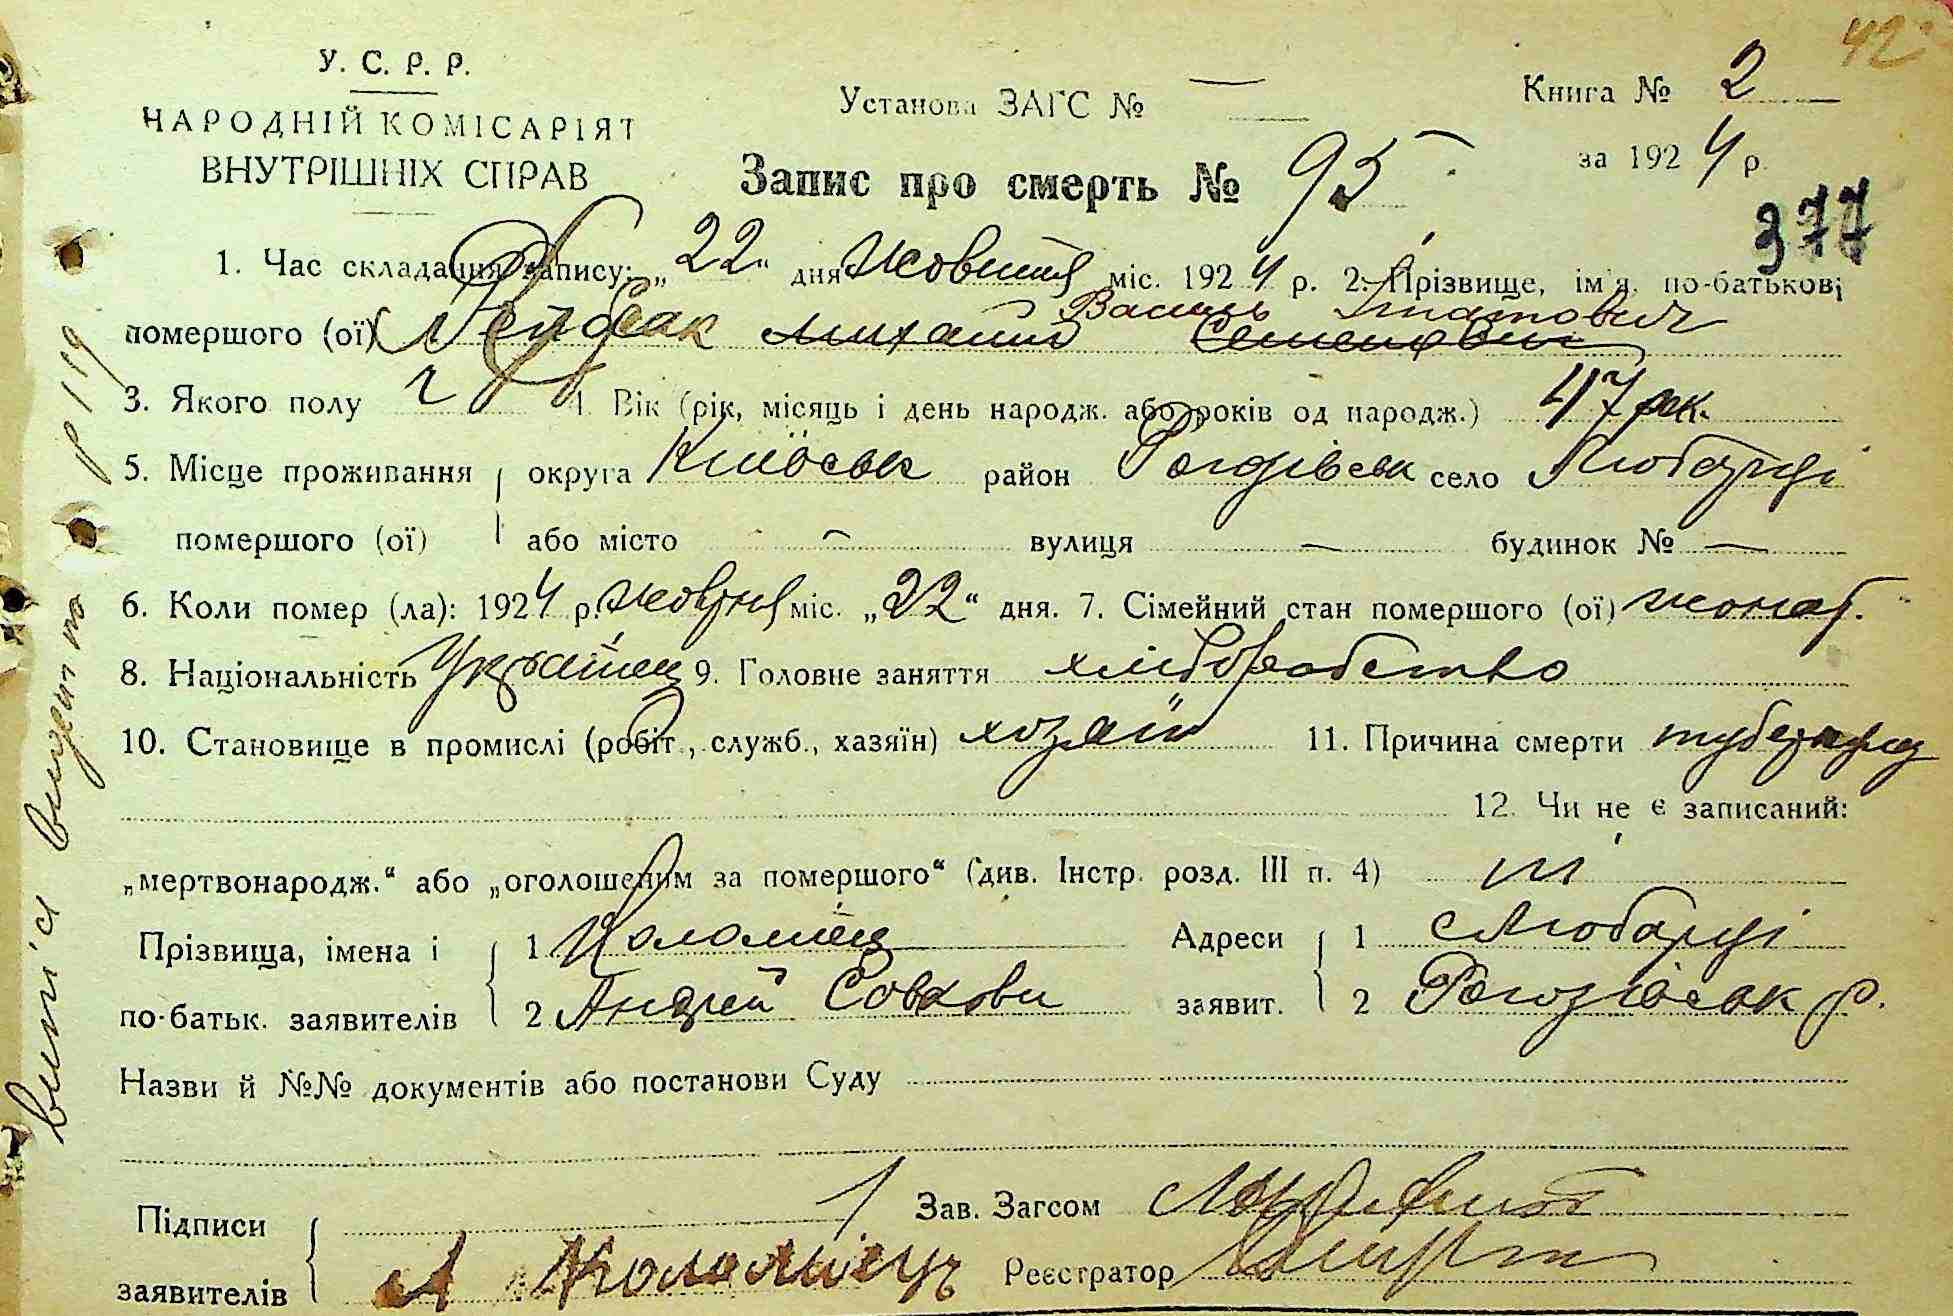 42
У. С. Р. Р.
НАРОДНІЙ КОМІСАРІЯТ
ВНУТРІШНІХ СПРАВ
Установа ЗАГС № —
Книга № 2
за 1924 р.
Запис про смерть № 95
377
1. Час складання запису: „22“ дня Жовтня міс. 1924 р. 2. Прізвище, ім'я, по-батькові
Василь Ігнатович
помершого (ої) Михайло Семенович
3. Якого полу ч 4. Вік (рік, місяць і день народж. або років од народж.) 47 рк.
5. Місце проживання округа Київськ район Рогозівськ село Любарці
помершого (ої) або місто — вулиця — будинок № —
6. Коли помер (ла): 1924 р. жовтня міс. „22“ дня. 7. Сімейний стан помершого (ої) жонат.
8. Національність Українец 9. Головне заняття хліборобство
10. Становище в промислі (робіт., служб., хазяїн) хозяїн 11. Причина смерти
12. Чи не є записаний:
„мертвонародж.“ або „оголошеним за помершого“ (див. Інстр. розд. III п. 4) ні
Прізвища, імена і 1 Коломієц Адреси 1 Любарці
по-батьк. заявителів 2 Андрей заявит. 2 Рогозівськ р.
Назви й №№ документів або постанови Суду
Підписи Зав. Загсом
заявителів А Коломиец Реєстратор